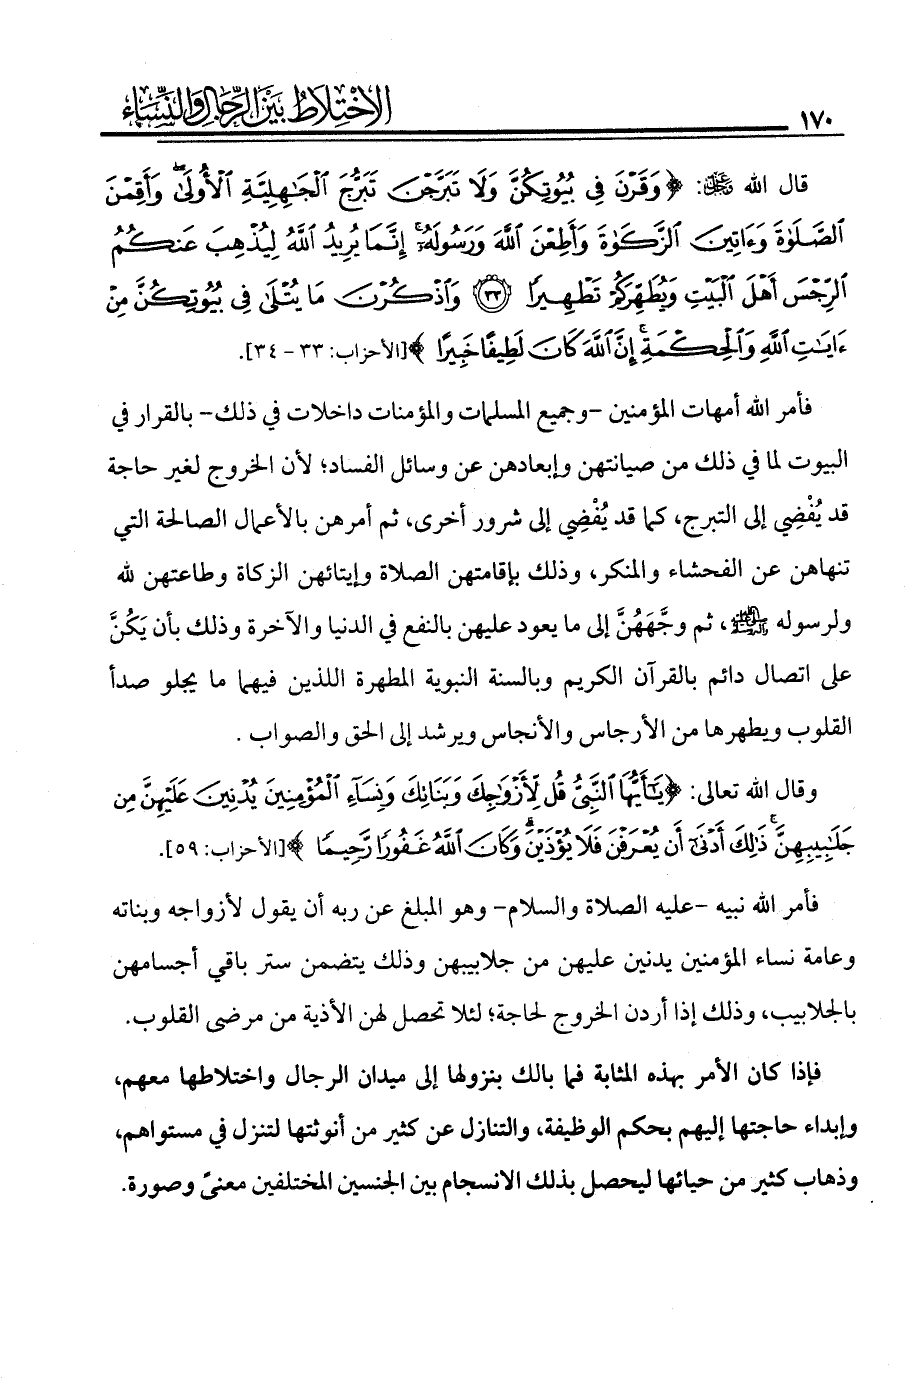 ١٧٠
الاختلاط بين الرجال والنساء
قال الله ﷿: ﴿وَقَرْنَ فِي بُيُوتِكُنَّ وَلَا تَبَرَّجْنَ تَبَرُّجَ ٱلْجَٰهِلِيَّةِ ٱلْأُولَىٰۖ وَأَقِمْنَ
ٱلصَّلَوٰةَ وَءَاتِينَ ٱلزَّكَوٰةَ وَأَطِعْنَ ٱللَّهَ وَرَسُولَهُۥٓۚ إِنَّمَا يُرِيدُ ٱللَّهُ لِيُذْهِبَ عَنكُمُ
ٱلرِّجْسَ أَهْلَ ٱلْبَيْتِ وَيُطَهِّرَكُمْ تَطْهِيرًا ٣٣ وَٱذْكُرْنَ مَا يُتْلَىٰ فِي بُيُوتِكُنَّ مِنْ
ءَايَٰتِ ٱللَّهِ وَٱلْحِكْمَةِۚ إِنَّ ٱللَّهَ كَانَ لَطِيفًا خَبِيرًا﴾ [الأحزاب: ٣٣ - ٣٤].
فأمر الله أمهات المؤمنين -وجميع المسلمات والمؤمنات داخلات في ذلك- بالقرار في
البيوت لما في ذلك من صيانتهن وإبعادهن عن وسائل الفساد؛ لأن الخروج لغير حاجة
قد يُفْضِي إلى التبرج، كما قد يُفْضِي إلى شرور أخرى، ثم أمرهن بالأعمال الصالحة التي
تنهاهن عن الفحشاء والمنكر، وذلك بإقامتهن الصلاة وإيتائهن الزكاة وطاعتهن لله
ولرسوله ﷺ، ثم وجَّهَهُنَّ إلى ما يعود عليهن بالنفع في الدنيا والآخرة وذلك بأن يَكُنَّ
على اتصال دائم بالقرآن الكريم وبالسنة النبوية المطهرة اللذين فيهما ما يجلو صدأ
القلوب ويطهرها من الأرجاس والأنجاس ويرشد إلى الحق والصواب .
وقال الله تعالى: ﴿يَٰٓأَيُّهَا ٱلنَّبِيُّ قُل لِّأَزْوَٰجِكَ وَبَنَاتِكَ وَنِسَآءِ ٱلْمُؤْمِنِينَ يُدْنِينَ عَلَيْهِنَّ مِن
جَلَٰبِيبِهِنَّۚ ذَٰلِكَ أَدْنَىٰٓ أَن يُعْرَفْنَ فَلَا يُؤْذَيْنَۗ وَكَانَ ٱللَّهُ غَفُورًا رَّحِيمًا﴾ [الأحزاب: ٥٩].
فأمر الله نبيه -عليه الصلاة والسلام- وهو المبلغ عن ربه أن يقول لأزواجه وبناته
وعامة نساء المؤمنين يدنين عليهن من جلابيبهن وذلك يتضمن ستر باقي أجسامهن
بالجلابيب، وذلك إذا أردن الخروج لحاجة؛ لئلا تحصل لهن الأذية من مرضى القلوب.
فإذا كان الأمر بهذه المثابة فما بالك بنزولها إلى ميدان الرجال واختلاطها معهم،
وإبداء حاجتها إليهم بحكم الوظيفة، والتنازل عن كثير من أنوثتها لتنزل في مستواهم،
وذهاب كثير من حيائها ليحصل بذلك الانسجام بين الجنسين المختلفين معنىً وصورة.